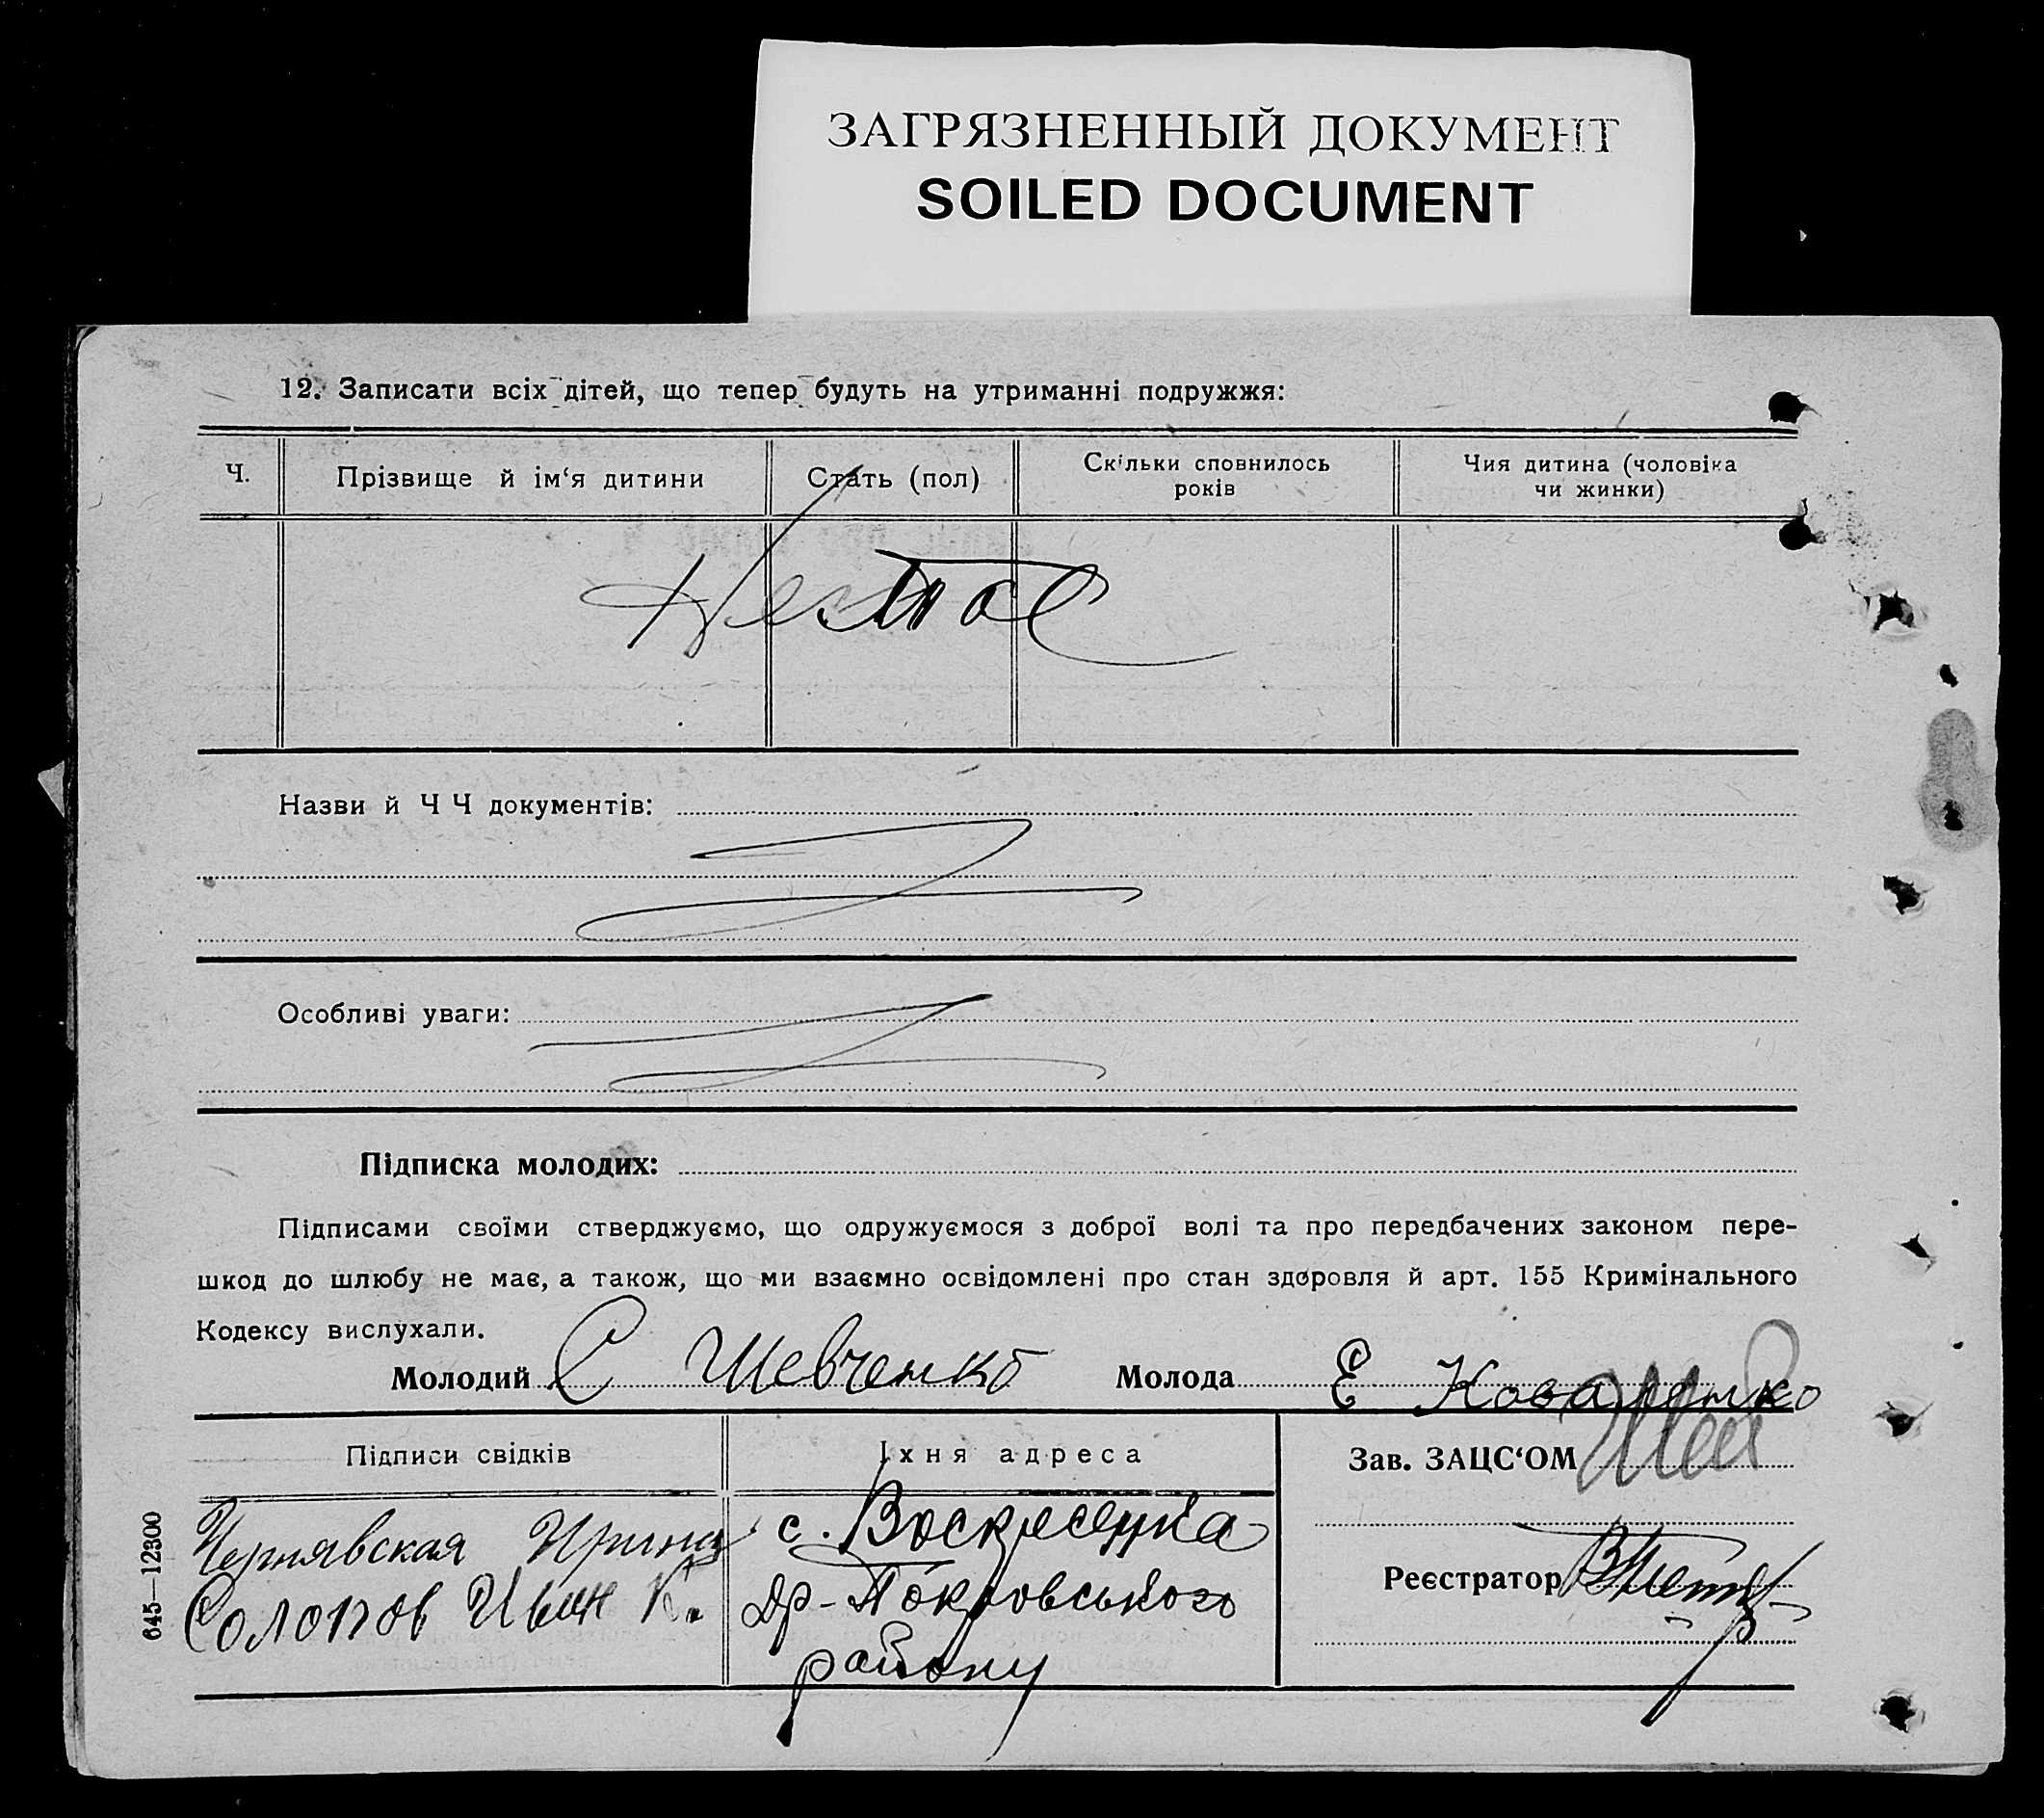 ЗАГРЯЗНЕННЫЙ ДОКУМЕНТ
SOILED DOCUMENT
12. Записати всіх дітей, що тепер будуть на утриманні подружжя:
Ч. Прізвище й ім‘я дитини Стать (пол) Скільки сповнилось років Чия дитина (чоловіка чи жинки)
Назви й Ч Ч документів:
Особливі уваги:
Підписка молодих:
Підписами своїми стверджуємо, що одружуємося з доброї волі та про передбачених законом пере-
шкод до шлюбу не має, а також, що ми взаємно освідомлені про стан здоровля й арт. 155 Кримінального
Кодексу вислухали.
Молодий С Шевченко Молода Е Коваленко
Підписи свідків Їхня адреса Зав. ЗАЦС‘ОМ
Чернявская Ирина с. Воскресенка
Солопов Иван К. Др-Покровського
Реєстратор
району
645—12300